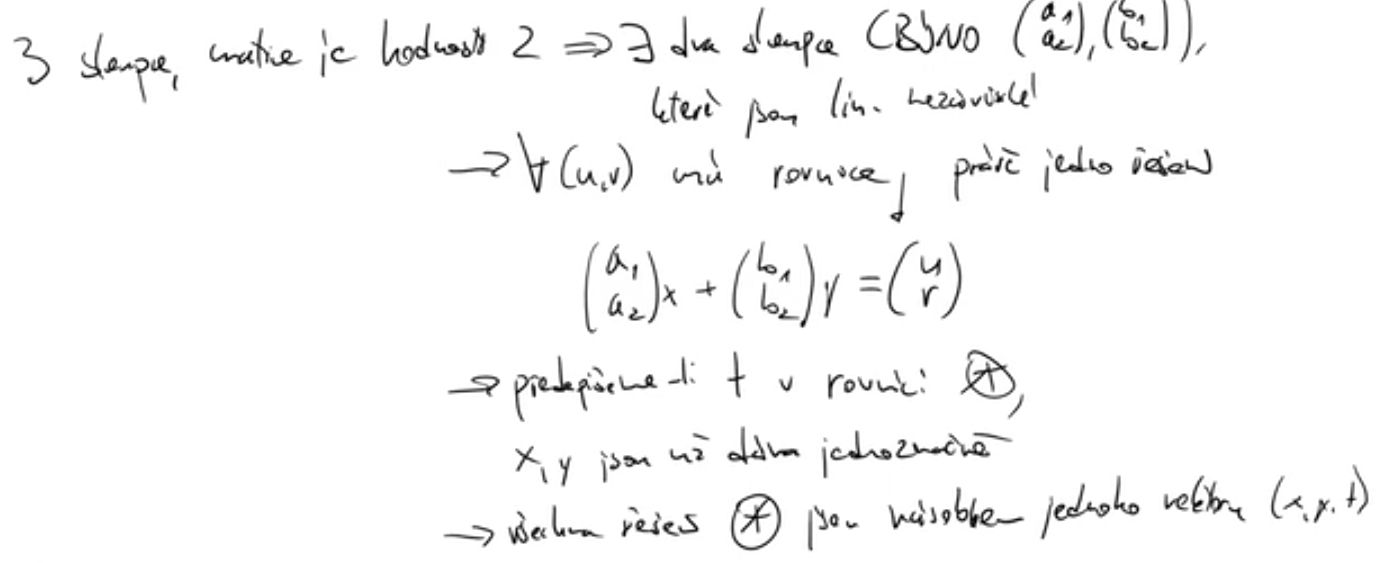 3 sloupce, matice je hodnosti 2 ⇒ ∃ dva sloupce (BÚNO (a₁ a₂), (b₁ b₂)),
které jsou lin. nezávislé
→ ∀(u,v) má rovnice ↓ právě jedno řešení
(a₁ a₂)x + (b₁ b₂)y = (u v)
→ předepíšeme-li t v rovnici ⊛,
x, y jsou už dána jednoznačně
→ všechna řešení ⊛ jsou násobkem jednoho vektoru (x, y, t)